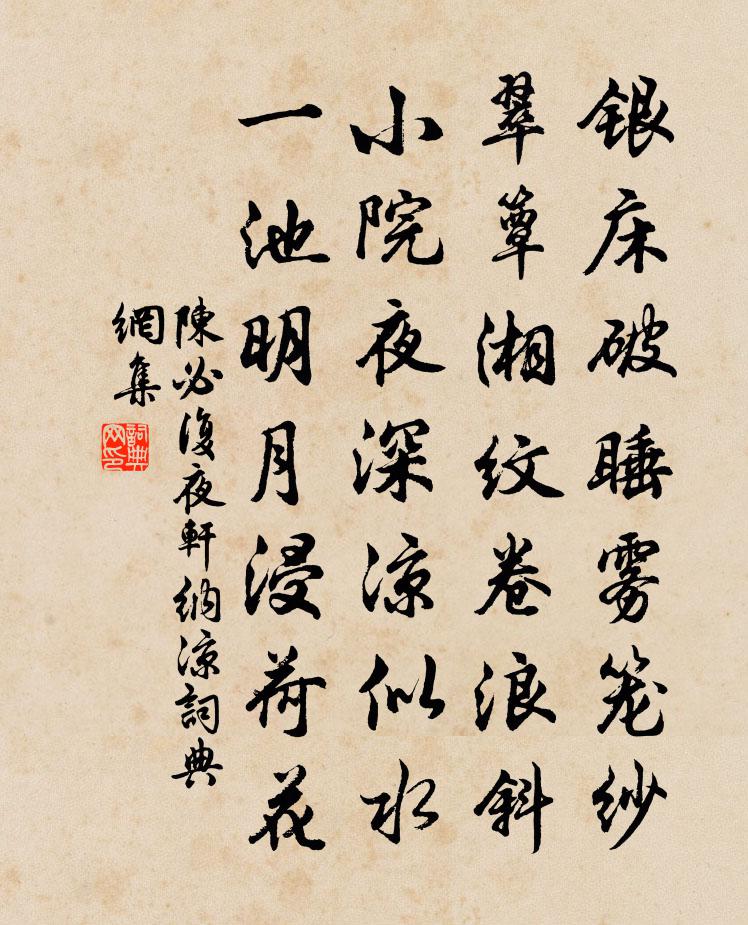 银床破睡雾笼纱
翠簟湘纹卷浪斜
小院夜深凉似水
一池明月浸荷花
陳必復夜軒納凉詞典
網集
詞典
网印